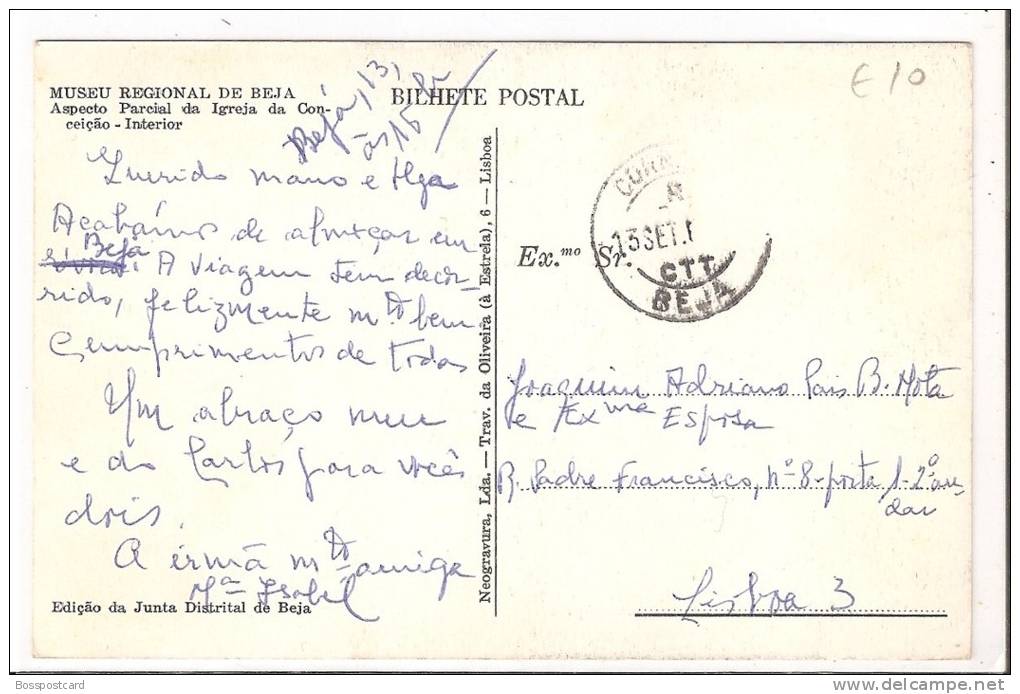 MUSEU REGIONAL DE BEJA
Aspecto Parcial da Igreja da Con-
ceição - Interior
BILHETE POSTAL
Beja, 13,
às 15
Querido mano e Olga
Acabámos de almoçar em
Beja
. A viagem tem decor-
rido, felizmente mtº bem
Cumprimentos de todos
Um abraço meu
e do Carlos para vocês
dois.
A irmã mtº amiga
Mª Isabel
Edição da Junta Distrital de Beja
Neogravura, Lda. — Trav. da Oliveira (à Estrela), 6 — Lisboa
€10
13 SET.1
CTT
BEJA
Ex.mo Sr.
Joaquim Adriano Pais B. Mota
e Exma Esposa
R. Padre Francisco, nº 8-porta 1-2º an-
dar
Lisboa 3
Bosspostcard
www.delcampe.net